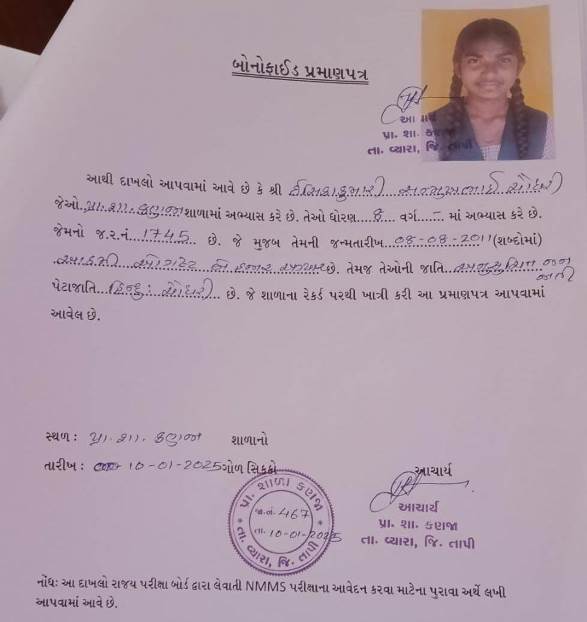 બોનોફાઈડ પ્રમાણપત્ર
આ
પ્રા. શા. કણજા
તા. વ્યારા, જિ. તાપી
આથી દાખલો આપવામાં આવે છે કે શ્રી ચૌધરી
જેઓ પ્રા. શા. કણજા શાળામાં અભ્યાસ કરે છે. તેઓ ધોરણ ૮ વર્ગ - માં અભ્યાસ કરે છે.
જેમનો જ.ર.નં. 1745 છે. જે મુજબ તેમની જન્મતારીખ 08-08-2011 (શબ્દોમાં)
આઠમી ઓગષ્ટ બે હજાર અગિયાર છે. તેમજ તેઓની જાતિ અનુસુચિત જન જાતી
પેટાજાતિ હિન્દુ : ચૌધરી છે. જે શાળાના રેકર્ડ પરથી ખાત્રી કરી આ પ્રમાણપત્ર આપવામાં
આવેલ છે.
સ્થળ : પ્રા. શા. કણજા શાળાનો
તારીખ : 10-01-2025 ગોળ સિક્કો
આચાર્ય
પ્રા. શાળા કણજા
જા.નં. 467
તા. 10-01-2025
તા. વ્યારા, જિ. તાપી
આચાર્ય
પ્રા. શા. કણજા
તા. વ્યારા, જિ. તાપી
નોંધઃ આ દાખલો રાજય પરીક્ષા બોર્ડ દ્વારા લેવાતી NMMS પરીક્ષાના આવેદન કરવા માટેના પુરાવા અર્થે લખી
આપવામાં આવે છે.